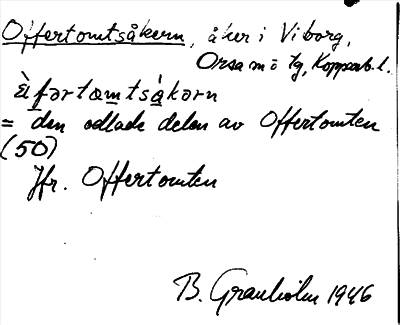 Offertomtsåkern, åker i Viborg,
Orsa m ö tg, Kopparb. l.
= den odlade delen av Offertomten
(50)
Jfr. Offertomten
B. Granholm 1946